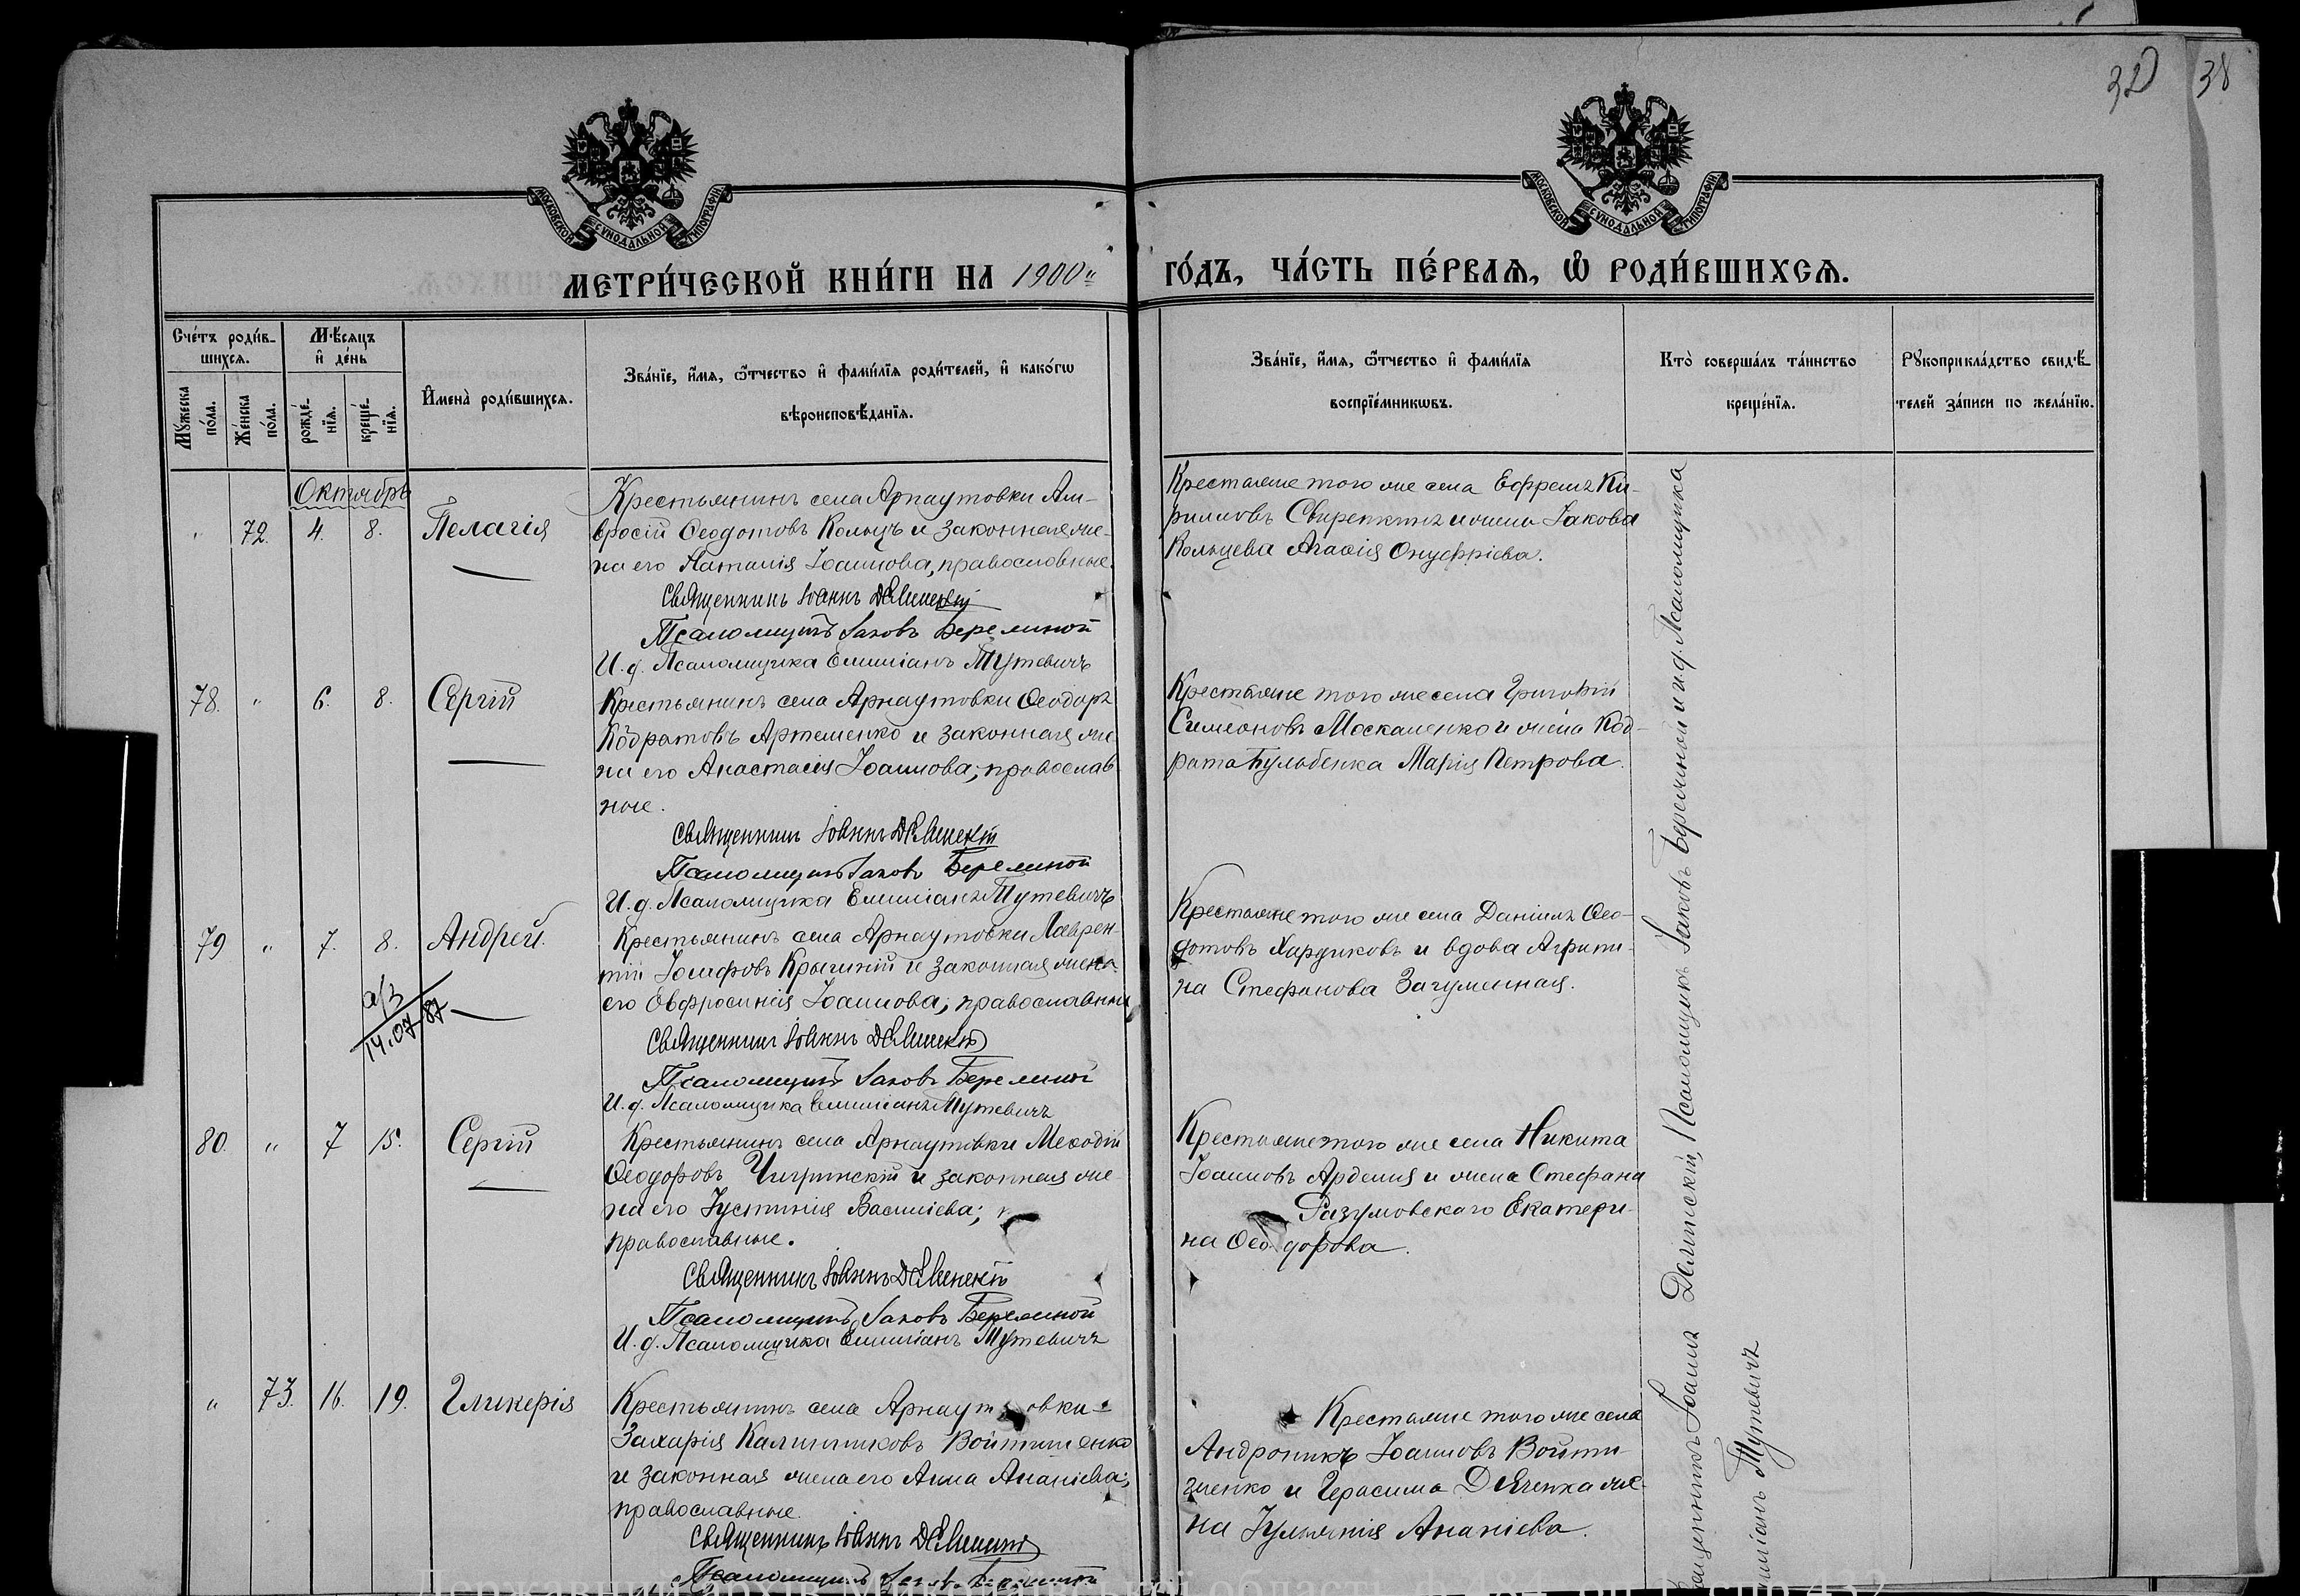 32 38
МОСКОВСКОЙ СѴНОДАЛЬНОЙ ТИПОГРАФІИ
МОСКОВСКОЙ СѴНОДАЛЬНОЙ ТИПОГРАФІИ
МЕТРИ́ЧЕСКОЙ КНИ́ГИ НА 1900 го́дъ, ча́сть пе́рваѧ, ѡ҆ роди́вшихсѧ.
Сче́тъ роди́вшихсѧ.
Мꙋ́жеска по́ла.
Же́нска по́ла.
Мѣ́сѧцъ и҆ де́нь
рожде́нїѧ.
креще́нїѧ.
И҆мена̀ роди́вшихсѧ.
Зва́нїе, и҆́мѧ, ѻ҆́тчество и҆ фами́лїѧ роди́телей, и҆ како́гѡ
вѣроисповѣ́данїѧ.
Зва́нїе, и҆́мѧ, ѻ҆́тчество и҆ фами́лїѧ
воспрїе́мникѡвъ.
Кто̀ соверша́лъ та́инство
креще́нїѧ.
Рꙋкоприкла́дство свидѣ́телей за́писи по жела́нїю.
Октябрь
" 72. 4. 8. Пелагія
Крестьянинъ села Арнаутовки Ам-
вросій Ѳеодотовъ Кольцъ и законная же-
на его Наталія Іоаннова, православные.
Священникъ Іоаннъ
Псаломщикъ Іаковъ Беременой
И. д. Псаломщика Емиліанъ Тутевичъ
Крестьяне того же села Ефремъ Ки-
рилловъ и жена Іакова
Кольцева Агаѳія Онуфріева.
78. " 6. 8. Сергій
Крестьянинъ села Арнаутовки Ѳеодоръ
Кодратовъ Артеменко и законная же
на его Анастасія Іоаннова; православ
ные.
Священникъ Іоаннъ
Псаломщикъ Іаковъ Беременой
И. д. Псаломщика Емиліанъ Тутевичъ
Крестьяне того же села Григорій
Симеоновъ Москаленко и жена Код-
рата Кульбенка Марія Петрова.
79 " 7. 8. Андрей.
а/з
14.07.87
Крестьянинъ села Арнаутовки Лаврен
тій Іосифовъ и законная жена
его Евфросинія Іоаннова; православны
Священникъ Іоаннъ
Псаломщикъ Іаковъ Беременой
И. д. Псаломщика Емиліанъ Тутевичъ
Крестьяне того же села Даніилъ Ѳео-
дотовъ и вдова Агрипи-
на Стефанова Загуменная.
80. " 7 15. Сергій
Крестьянинъ села Арнаутовки Меѳодій
Ѳеодоровъ Чигринскій и законная же
на его Іустинія Василіева;
православные.
Священникъ Іоаннъ
Псаломщикъ Іаковъ Беременой
И. д. Псаломщика Емиліанъ Тутевичъ
Крестьяне того же села Никита
Іоанновъ и жена Стефана
Разумовскаго Екатери-
на Ѳеодорова.
" 73. 16. 19. Гликерія
Крестьянинъ села Арнаутовки
Захарія Калинниковъ Войтиченко
и законная жена его Анна Ананіева;
православные.
Священникъ Іоаннъ
Псаломщикъ Іаковъ Беременой
Крестьяне того же села
Андроникъ Іоанновъ Войти-
ченко и Герасима Дяченка же-
на Іуліанія Ананіева.
Священникъ Іоаннъ Псаломщикъ Іаковъ Беременой и и. д. Псаломщика
Емиліанъ Тутевичъ